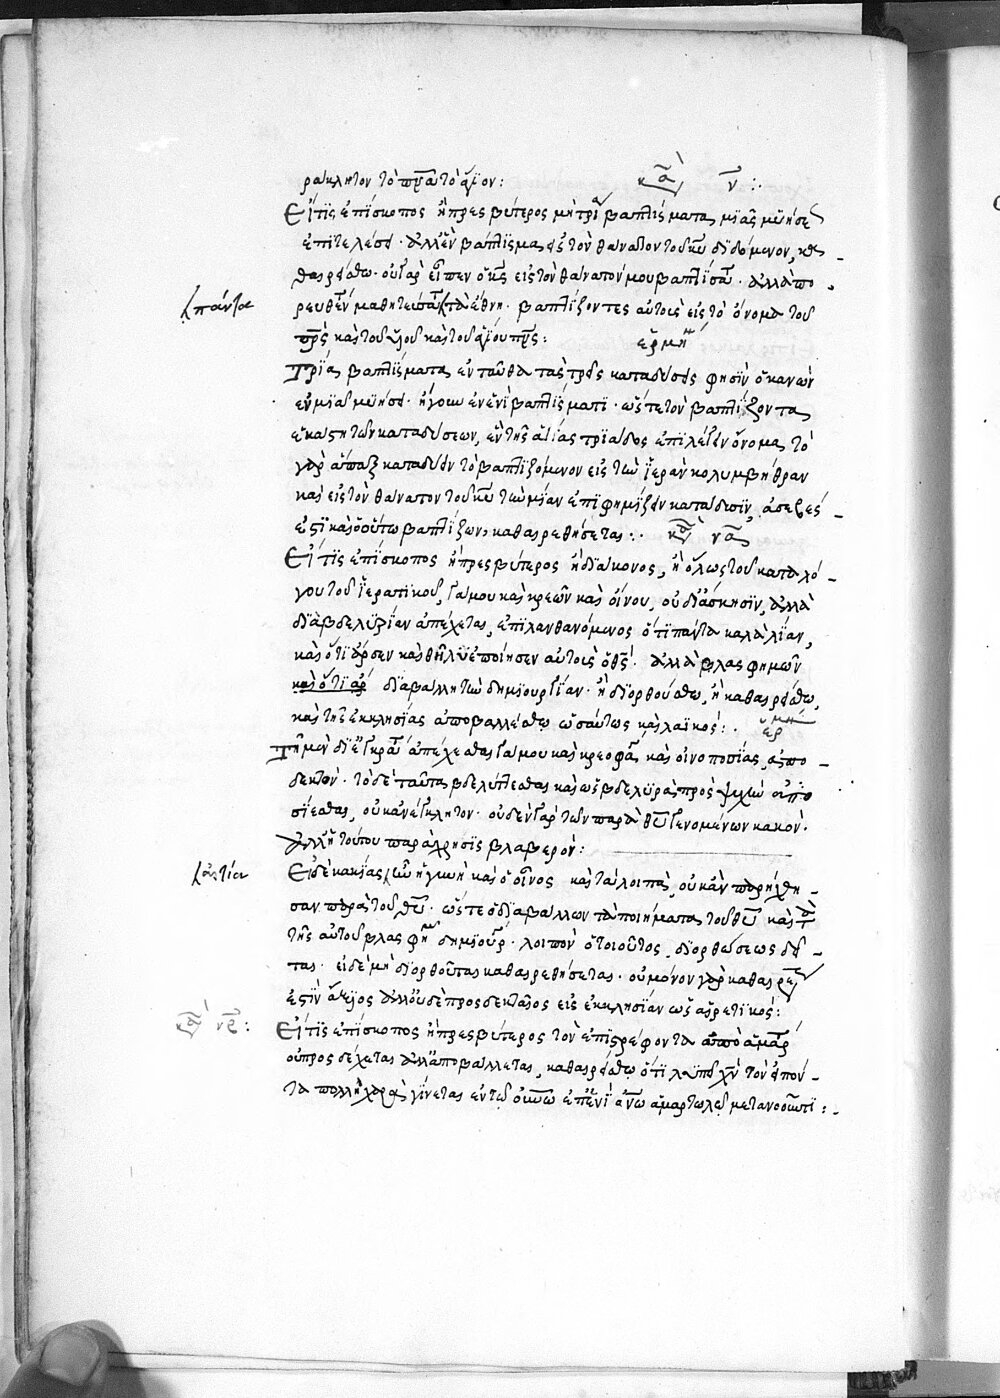 ράκλητον τὸ πνα τὸ ἅγιον: κα ν :.
Εἴ τις ἐπίσκοπος ἢ πρεσβύτερος μὴ τρία βαπτίσματα μιᾶς μυήσε
ἐπιτελέσει. ἀλλ' ἓν βάπτισμα εἰς τὸν θάνατον τοῦ κυ διδόμενον, κα
θαιρείσθω. οὐ γὰρ εἶπεν ὁ κς εἰς τὸν θάνατόν μου βαπτίσατε. ἀλλὰ πο
πάντα
ρευθέντες μαθητεύσατε τὰ ἔθνη. βαπτίζοντες αὐτοὺς εἰς τὸ ὄνομα τοῦ
πρς καὶ τοῦ υἱοῦ καὶ τοῦ ἁγίου πνς: ἑρμη
Τρία βαπτίσματα ἐνταῦθα τὰς τρεῖς καταδύσεις φησὶν ὁ κανών
ἐν μιᾷ μυήσει. ἤγουν ἐν ἑνὶ βαπτίσματι. ὥστε τὸν βαπτίζοντα
ἑκάστη τῶν καταδύσεων, ἓν τῆς ἁγίας τριάδος ἐπιλέγειν ὄνομα, τὸ
γὰρ ἅπαξ καταδύειν τὸ βαπτιζόμενον εἰς τὴν ἱερὰν κολυμβήθραν
καὶ εἰς τὸν θάνατον τοῦ κυ τὴν μίαν ἐπιφημίζειν κατάδυσιν, ἀσεβές
ἐστι καὶ ὁ οὕτω βαπτίζων, καθαιρεθήσεται:. κα να
Εἴ τις ἐπίσκοπος ἢ πρεσβύτερος ἢ διάκονος, ἢ ὅλως τοῦ καταλό
γου τοῦ ἱερατικοῦ, γάμου καὶ κρεῶν καὶ οἴνου, οὐ δι' ἄσκησιν, ἀλλὰ
διὰ βδελυρίαν ἀπέχεται, ἐπιλανθανόμενος ὅτι πάντα καλὰ λίαν,
καὶ ὅτι ἄρσεν καὶ θῆλυ ἐποίησεν αὐτοὺς ὁ θς. ἀλλὰ βλασφημῶν
καὶ ὅτι ἄρ διαβάλλη τὴν δημιουργίαν. ἢ διορθούσθω, ἢ καθαιρείσθω,
καὶ τῆς ἐκκλησίας ἀποβαλλέσθω ὡσαύτως καὶ λαϊκός:. ἑρμη
Τὸ μὲν δι' ἐγκράτ ἀπέχεσθαι γάμου καὶ κρεοφα καὶ οἰνοποσίας, ἀπο
δεκτόν. τὸ δὲ ταῦτα βδελύττεσθαι καὶ ὡς βδελυρὰ πρὸς ψιλὴν ἀπο
σιέσθαι, οὐκ ἀνέγκλητον. οὐδὲν γὰρ τῶν παρὰ θυ γενομένων κακόν.
ἀλλ' ἡ τούτου παράχρησις βλαβερόν:
αἰτία
Εἰ δὲ κακίας ἦν ἡ γυνὴ καὶ ὁ οἶνος καὶ τὰ λοιπὰ, οὐκ ἂν παρήχθη
σαν παρὰ τοῦ θυ. ὥστε ὁ διαβάλλων τὰ ποιήματα τοῦ θυ καὶ
τῆς αὐτοῦ βλασφημ δημιουρ. λοιπὸν ὁ τοιοῦτος, διορθώσεως δεῖ
ται. εἰ δὲ μὴ διορθοῦται καθαιρεθήσεται. οὐ μόνον γὰρ καθαιρέ
ἐστὶν ἄξιος ἀλλ' οὐδὲ προσδεκταῖος εἰς ἐκκλησίαν ὡς αἱρετικός:
κα νβ:
Εἴ τις ἐπίσκοπος ἢ πρεσβύτερος τὸν ἐπιστρέφοντα ἀπὸ ἁμαρ
οὐ προσδέχεται ἀλλ' ἀποβάλλεται, καθαιρείσθω ὅτι λυπεῖ χν τὸν εἰπόν
τα πολλὴ χαρὰ γίνεται ἐν τῷ οὐνω ἐπὶ ἑνὶ ανω ἁμαρτωλῷ μετανοοῦντι: